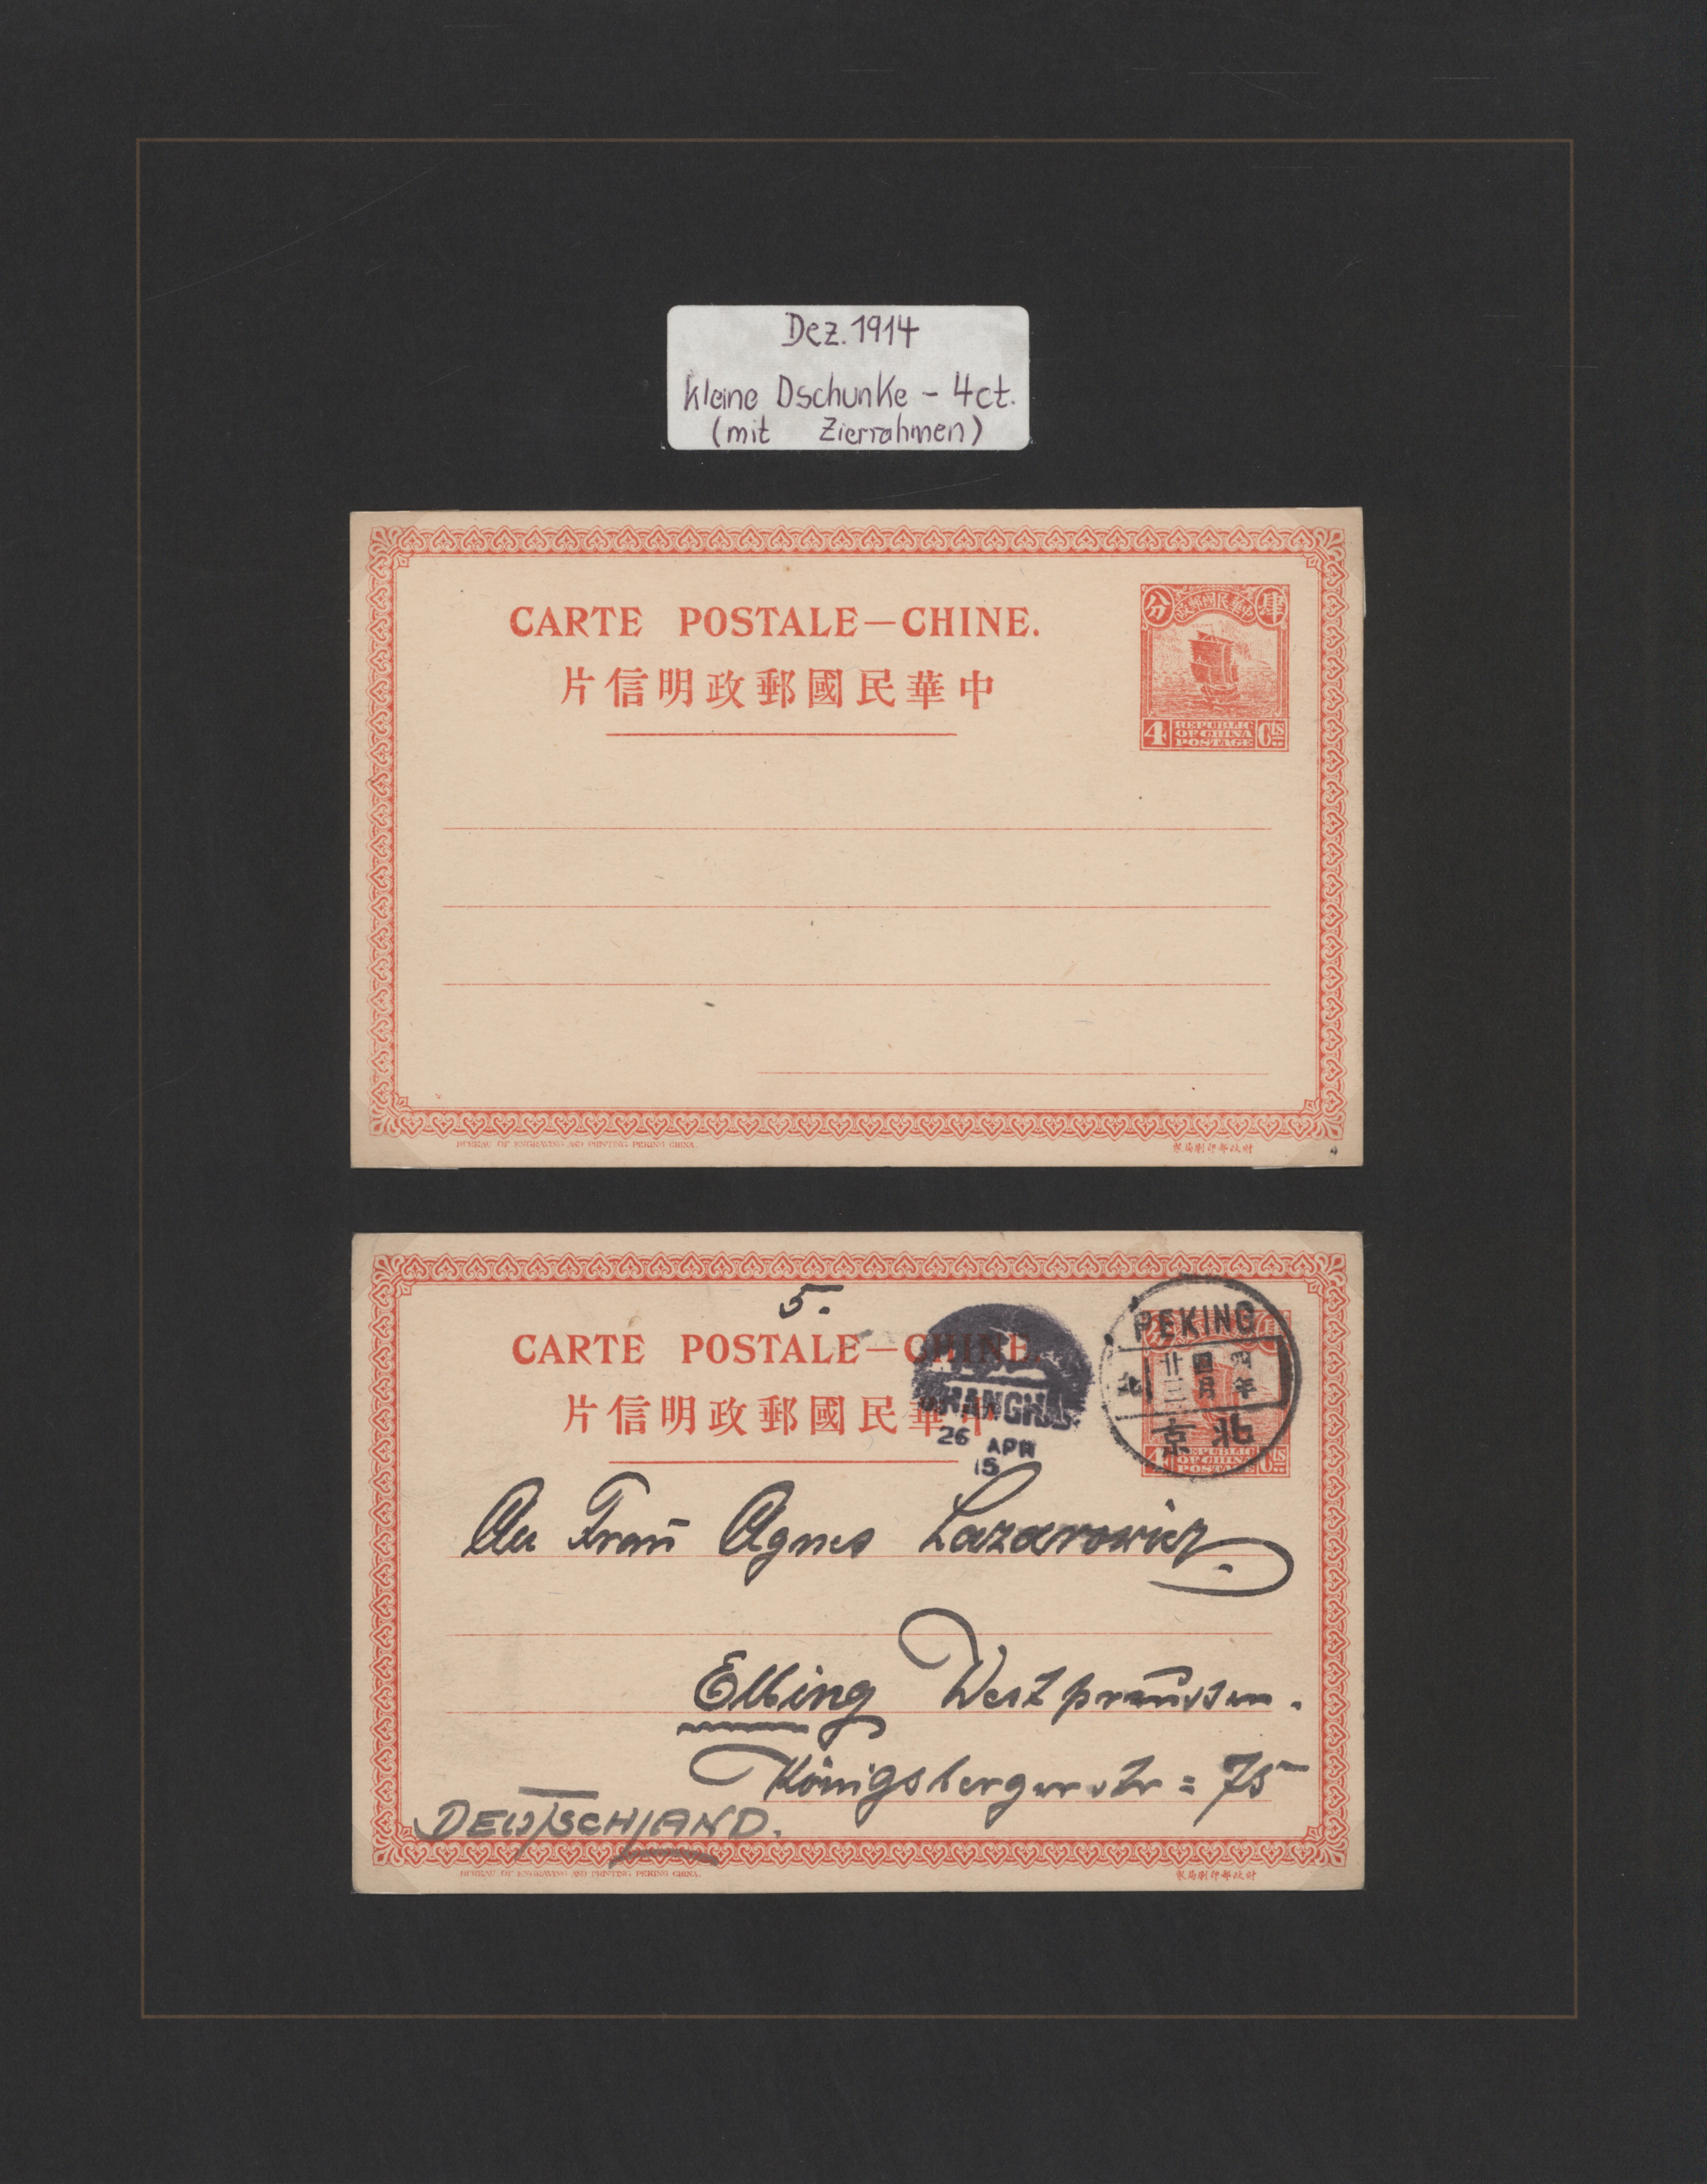 Dez. 1914
kleine Dschunke - 4ct.
(mit Zierrahmen)
CARTE POSTALE—CHINE.
片信明政郵國民華中
分 政郵國民華中 肆
4 REPUBLIC OF CHINA POSTAGE Cts
BUREAU OF ENGRAVING AND PRINTING PEKING CHINA.
製局刷印部政財
5.
CARTE POSTALE—CHINE.
片信明政郵國民華中
SHANGHAI
26 APR
15
PEKING
廿三 四月 四年
京北
4 REPUBLIC OF CHINA POSTAGE Cts
An Frau Agnes Lazarowicz.
Elbing Westpreussen.
Königsbergerstr = 75
DEUTSCHLAND.
BUREAU OF ENGRAVING AND PRINTING PEKING CHINA.
製局刷印部政財